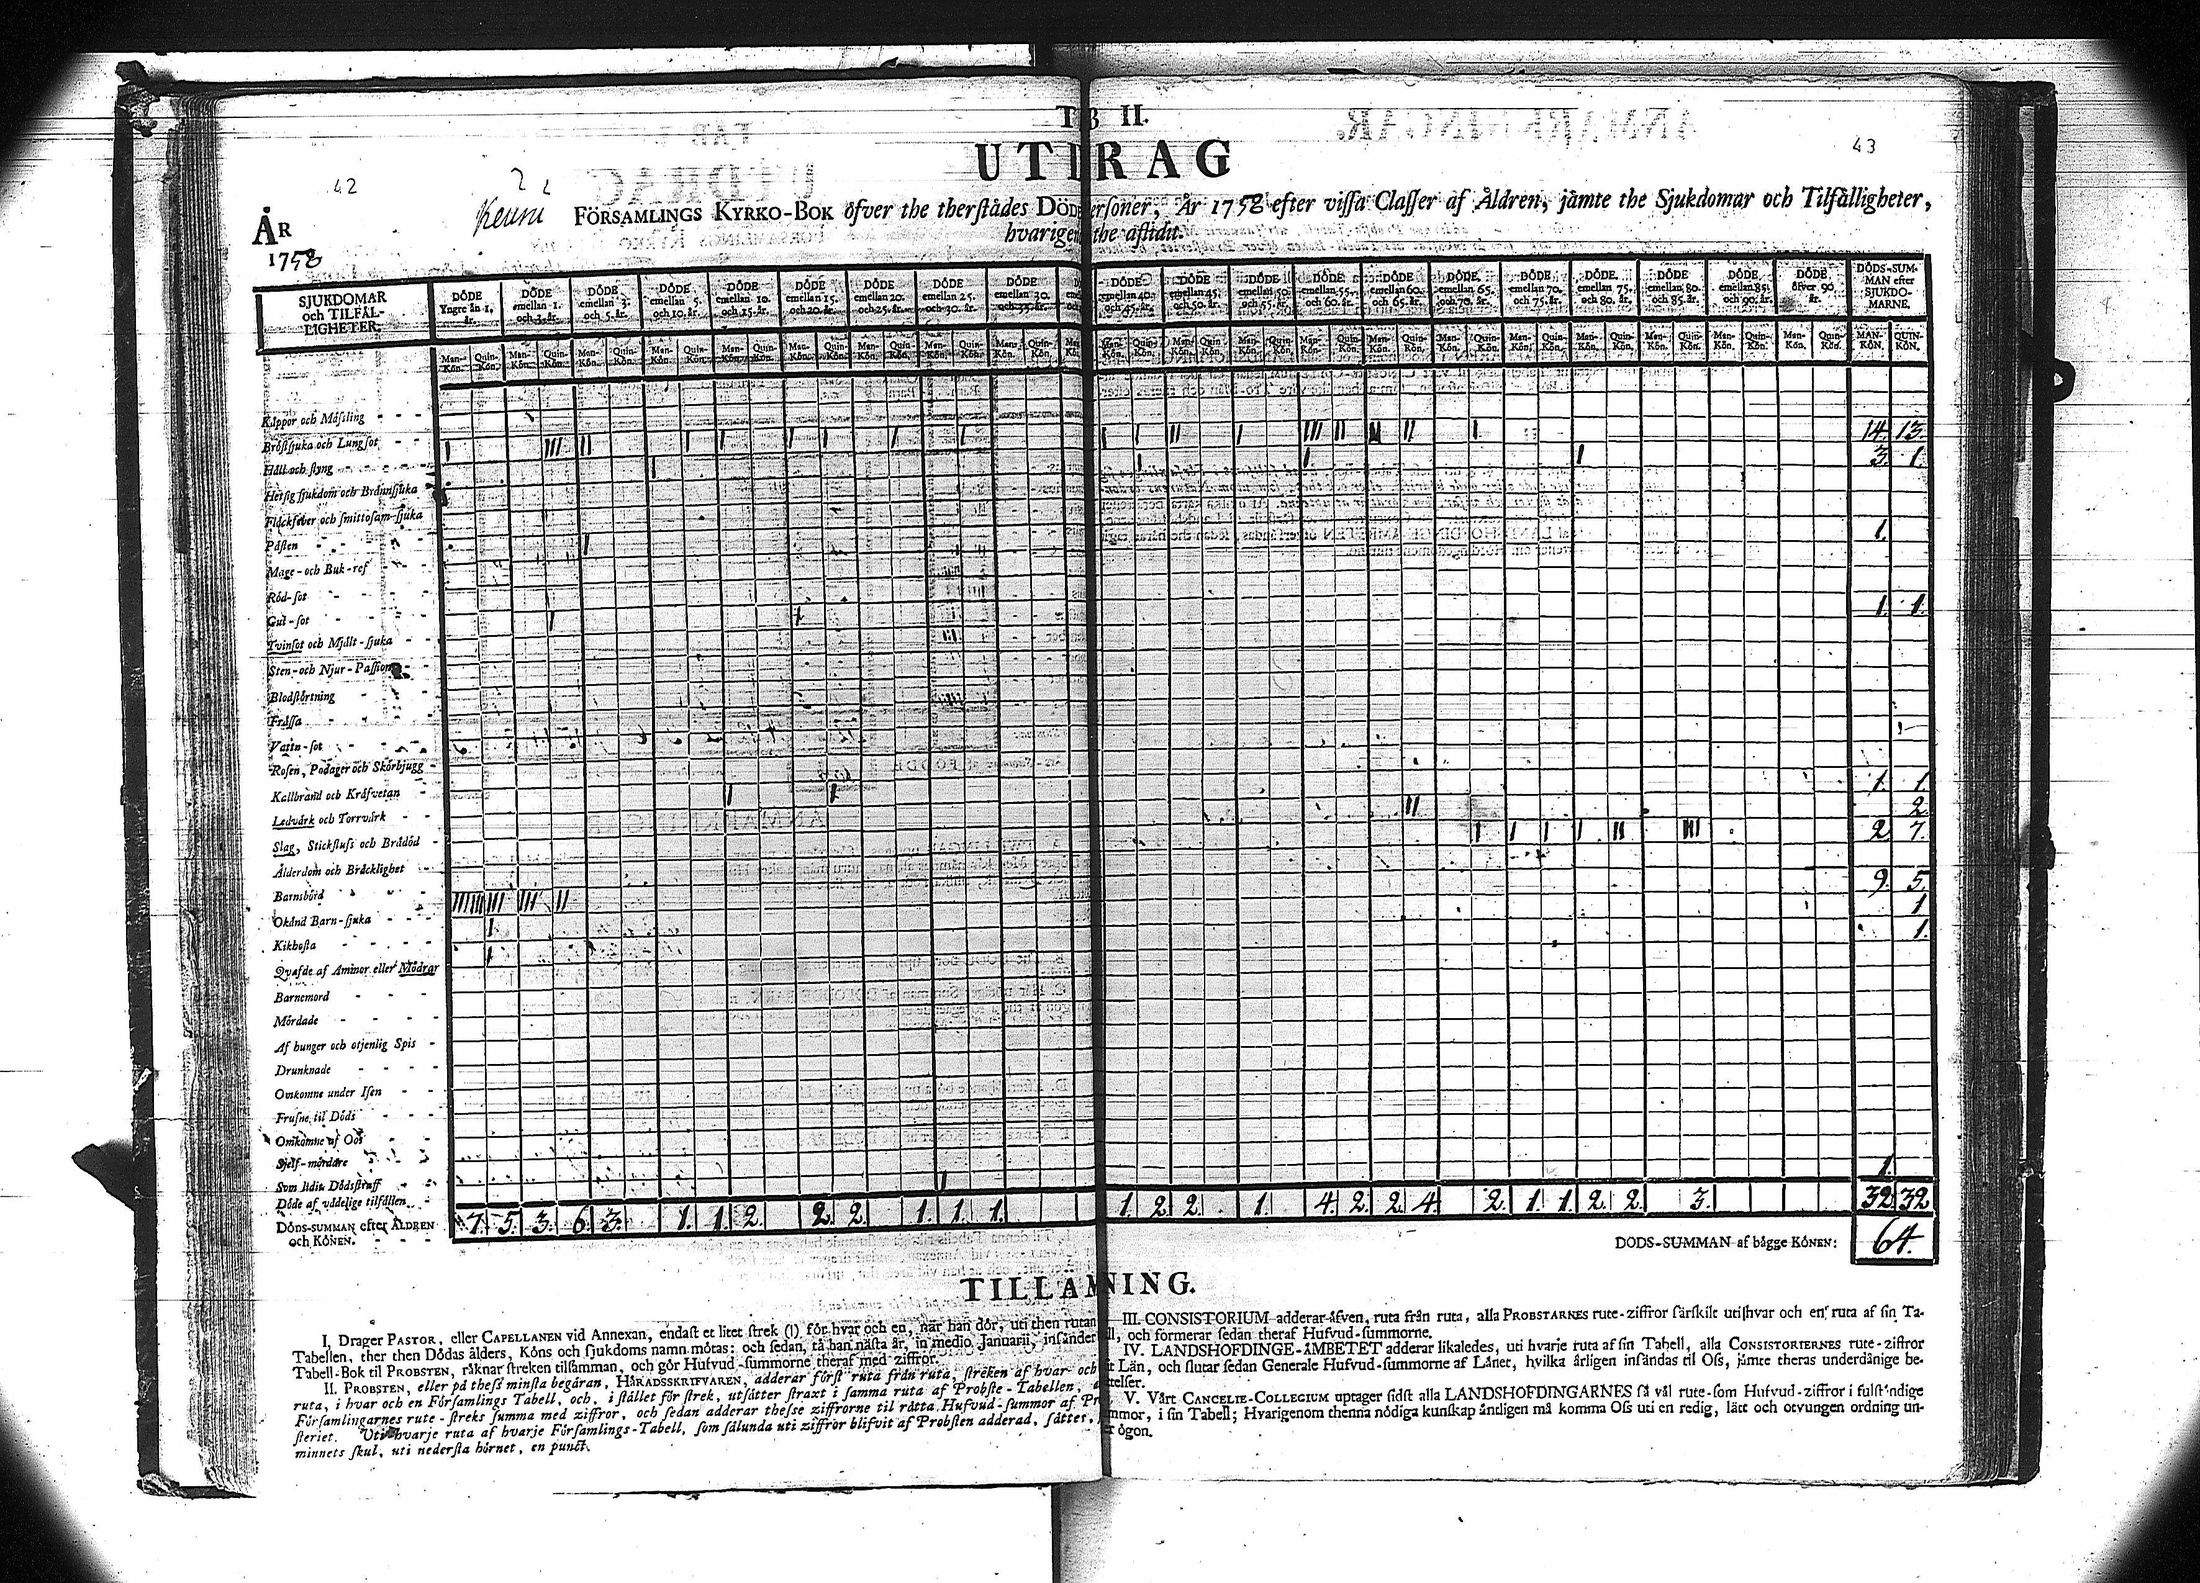 T B II.
UT RAG
42
43
Keuru FÖRSAMLINGS KYRKO-BOK öfver the therstädes DÖDE ersoner, År 1758 efter vissa Classer af Åldren, jämte the Sjukdomar och Tilfälligheter,
hvarigen the aflidit.
ÅR
1758
SJUKDOMAR och TILFÄLLIGHETER.
DÖDE Yngre än 1. år.
DÖDE emellan 1. och 3. år.
DÖDE emellan 3. och 5. år.
DÖDE emellan 5. och 10. år.
DÖDE emellan 10. och 15. år.
DÖDE emellan 15. och 20. år.
DÖDE emellan 20. och 25. år.
DÖDE emellan 25. och 30. år.
DÖDE emellan 30. och 35. år.
DÖDE emellan 40. och 45. år.
DÖDE emellan 45. och 50. år.
DÖDE emellan 50. och 55. år.
DÖDE emellan 55. och 60. år.
DÖDE emellan 60. och 65. år.
DÖDE emellan 65. och 70. år.
DÖDE emellan 70. och 75. år.
DÖDE emellan 75. och 80. år.
DÖDE emellan 80. och 85. år.
DÖDE emellan 85. och 90. år.
DÖDE öfver 90 år.
DÖDS-SUMMAN efter SJUKDOMARNE.
Man-Kön. Quin-Kön.
MAN KÖN. QUIN-KÖN.
Kåppor och Mäßling
Bröstsjuka och Lungsot 14. 13.
Håll och styng 3. 1.
Hetsig sjukdom och Brännsjuka
Fläckfeber och smittosam sjuka
Pästen 1.
Mage- och Buk-ref
Röd-sot
Gul-sot 1. 1.
Tvinsot och Mjält-sjuka
Sten- och Njur-Passion
Blodstörtning
Fråssa
Vattu-sot
Rosen, Podager och Skörbjugg
Kallbrand och Kräfvetan 1. 1.
Ledvärk och Torrvärk 2
Slag, Stickfluss och Brådöd 2 7.
Ålderdom och Bräcklighet
Barnsbörd 9. 5.
Okänd Barn-sjuka 1
Kikhosta 1.
Qvafde af Ammor eller Mödrar
Barnemord
Mördade
Af hunger och otjenlig Spis
Drunknade
Omkomne under Isen
Frusne til Döds
Omkomne af Oos
Sjelf-mördare
Som lidit Dödsstraff
Döde af vådelige tilfällen 1.
DÖDS-SUMMAN efter ÅLDREN och KÖNEN. 7. 5. 3. 6. 3. 1. 1. 2. 2. 2. 1. 1. 1. 1. 2. 2. 1. 4. 2. 2. 4. 2. 1. 1. 2. 2. 3. 32. 32
DÖDS-SUMMAN af bägge KÖNEN: 64.
TILLÄ NING.
I. Drager PASTOR, eller CAPELLANEN vid Annexan, endast et litet strek (I), för hvar och en, när han dör, uti then rutan
Tabellen, ther then Dödas ålders, Köns och sjukdoms namn mötas: och sedan, tå han nästa år, in medio Januarii, insänder
Tabell-Bok til PROBSTEN, räknar streken tilsamman, och gör Hufvud-summorne theraf med ziffror.
II. PROBSTEN, eller på theß minsta begäran, HÄRADSSKRIFVAREN, adderar först ruta från ruta, streken af hvar och
ruta, i hvar och en Församlings Tabell, och, i stället för strek, utsätter straxt i samma ruta af Probste-Tabellen,
Församlingarnes rute-streks summa med ziffror, och sedan adderar theße ziffrorne til rätta Hufvud-summor af Pr
steriet. Uti hvarje ruta af hvarje Församlings-Tabell, som sålunda uti ziffror blifvit af Probsten adderad, sättes,
minnets skul, uti nedersta hörnet, en punct.
III. CONSISTORIUM adderar äfven, ruta från ruta, alla PROBSTARNES rute-ziffror särskilt uti hvar och en ruta af sin Ta-
ll, och formerar sedan theraf Hufvud-summorne.
IV. LANDSHOFDINGE-ÄMBETET adderar likaledes, uti hvarje ruta af sin Tabell, alla CONSISTORIERNES rute-ziffror
t Län, och slutar sedan Generale Hufvud-summorne af Länet, hvilka årligen insändas til Oss, jämte theras underdånige be-
telser.
V. Vårt CANCELIE-COLLEGIUM uptager sidst alla LANDSHOFDINGARNES så väl rute-som Hufvud-ziffror i fulständige
mmor, i sin Tabell; Hvarigenom thenna nödiga kunskap äntligen må komma Oss uti en redig, lätt och otvungen ordning un-
r ögon.